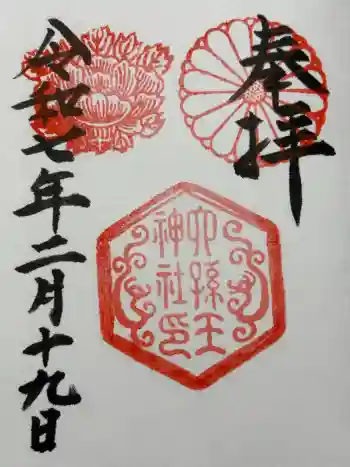 奉拝
六孫王
神社印
令和七年二月十九日